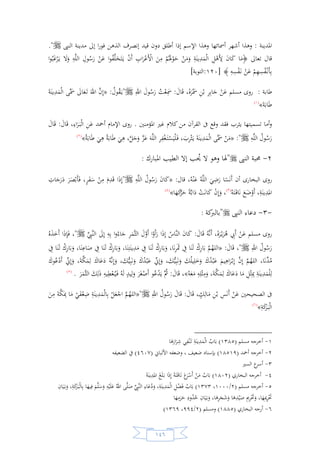 المدينة : وهذا أشهر أسمائها وهذا الإسم إذا أطلق دون قيد إنصرف الذهن فورا إلى مدينة النبى ".
قال تعالى ﴿مَا كَانَ لِأَهْلِ الْمَدِينَةِ وَمَنْ حَوْلَهُمْ مِنَ الْأَعْرَابِ أَنْ يَتَخَلَّفُوا عَنْ رَسُولِ اللَّهِ وَلَا يَرْغَبُوا
بِأَنْفُسِهِمْ عَنْ نَفْسِهِ ﴾ [التوبة:١٢٠]
طابة : روى مسلم عَنْ جَابِرِ بْنِ سَمُرَةَ، قَالَ: سَمِعْتُ رَسُولَ اللهِ "يَقُولُ: «إِنَّ اللهَ تَعَالَى سَمَّى الْمَدِينَةَ
طَابَةَ»
وأما تسميتها يثرب فقد وقع فى القرآن من كلام غير المؤمنين . روى الإمام أحمد عَنِ الْبَرَاءِ، قَالَ: قَالَ
رَسُولُ اللَّهِ ": «مَنْ سَمَّى الْمَدِينَةَ يَثْرِبَ، فَلْيَسْتَغْفِرِ اللَّهَ عَزَّ وَجَلَّ، هِيَ طَابَةُ هِيَ طَابَةُ»
٢- محبة النبى "لها وهو لا يحب إلا الطيب المبارك :
روى البخارى أن أَنَسًا رَضِيَ اللَّهُ عَنْهُ، قال: «كَانَ رَسُولُ اللَّهِ "إِذَا قَدِمَ مِنْ سَفَرٍ، فَأَبْصَرَ دَرَجَاتِ
الْمَدِينَةِ، أَوْضَعَ نَاقَتَهُ، وَإِنْ كَانَتْ دَابَّةً حَرَّكَهَا»
٣- دعاء النبى "بالبركة :
روى مسلم عَنْ أَبِي هُرَيْرَةَ، أَنَّهُ قَالَ: كَانَ النَّاسُ إِذَا رَأَوْا أَوَّلَ الثَّمَرِ جَاءُوا بِهِ إِلَى النَّبِيِّ "، فَإِذَا أَخَذَهُ
رَسُولُ اللهِ "، قَالَ: «اللهُمَّ بَارِكْ لَنَا فِي ثَمَرِنَا، وَبَارِكْ لَنَا فِي مَدِينَتِنَا، وَبَارِكْ لَنَا فِي صَاعِنَا، وَبَارِكْ لَنَا فِي
مُدِّنَا، اللهُمَّ إِنَّ إِبْرَاهِيمَ عَبْدُكَ وَخَلِيلُكَ وَنَبِيُّكَ، وَإِنِّي عَبْدُكَ وَنَبِيُّكَ، وَإِنَّهُ دَعَاكَ لِمَكَّةَ، وَإِنِّي أَدْعُوكَ
لِلْمَدِينَةِ بِمِثْلِ مَا دَعَاكَ لِمَكَّةَ، وَمِثْلِهِ مَعَهُ»، قَالَ: ثُمَّ يَدْعُو أَصْغَرَ وَلِيدٍ لَهُ فَيُعْطِيهِ ذَلِكَ الثَّمَرَ .
فى الصحيحين عَنْ أَنَسِ بْنِ مَالِكٍ، قَالَ: قَالَ رَسُولُ اللهِ "«اللهُمَّ اجْعَلْ بِالْمَدِينَةِ ضِعْفَيْ مَا بِمَكَّةَ مِنَ
الْبَرَكَةِ»
١- أخرجه مسلم (١٣٨٥) بَابُ الْمَدِينَةِ تَنْفِي شِرَارَهَا
٢- أخرجه أحمد (١٨٥١٩) بإسناد ضعيف ، وضعفه الألبانى (٤٦٠٧) فى الضعيفه
٣- أسرع السير
٤- أخرجه البخارى (١٨٠٢) بَابُ مَنْ أَسْرَعَ نَاقَتَهُ إِذَا بَلَغَ المَدِينَةَ
٥- أخرجه مسلم (١٠٠٠/٢، ١٣٧٣) بَابُ فَضْلِ الْمَدِينَةِ، وَدُعَاءِ النَّبِيِّ صَلَّى اللهُ عَلَيْهِ وَسَلَّمَ فِيهَا بِالْبَرَكَةِ، وَبَيَانِ
تَحْرِيمِهَا، وَتَحْرِيمِ صَيْدِهَا وَشَجَرِهَا، وَبَيَانِ حُدُودِ حَرَمِهَا
٦- أرجه البخارى (١٨٨٥) ومسلم (٩٩٤/٢، ١٣٦٩)
١٤٦